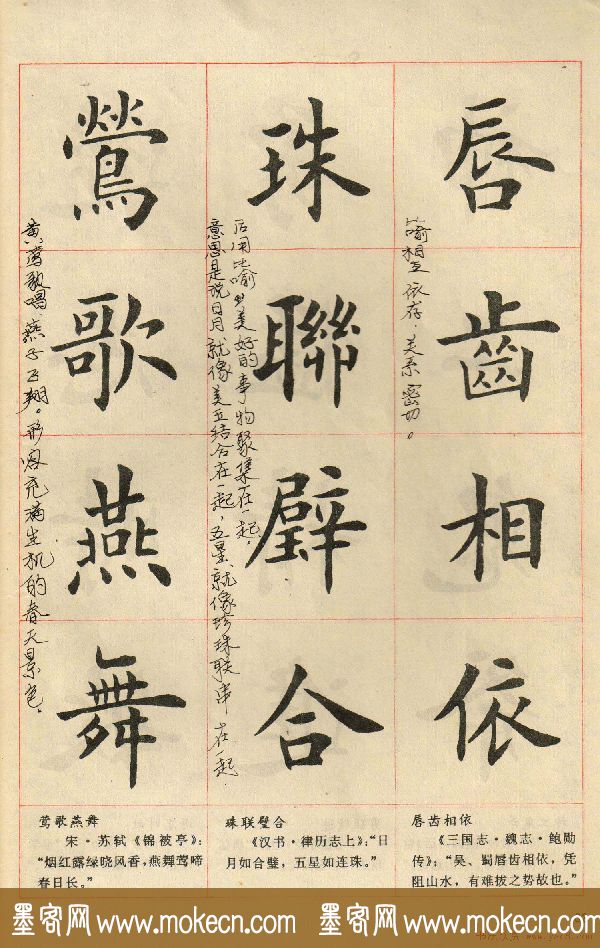 唇齒相依
比喻相互依存，关系密切。
珠聯璧合
后用比喻美好的事物聚集在一起，
意思是说日月就像美玉结合在一起，五星就像珍珠联串在一起。
鶯歌燕舞
黄莺歌唱，燕子飞翔。形容充满生机的春天景色。
唇齿相依
《三国志·魏志·鲍勋
传》：“吴、蜀唇齿相依，凭
阻山水，有难拔之势故也。”
珠联璧合
《汉书·律历志上》：“日
月如合璧，五星如连珠。”
莺歌燕舞
宋·苏轼《锦被亭》：
“烟红露绿晓风香，燕舞莺啼
春日长。”
墨客网 www.mokecn.com 墨客网 www.mokecn.com